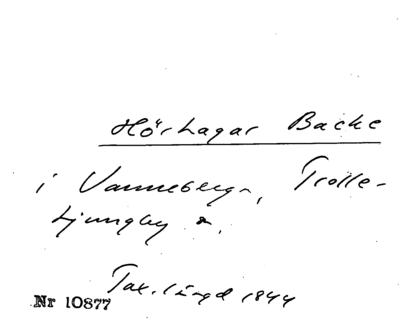 Hörhagar Backe
i Vanneberga, Trolle-
Ljungby s.
Tax.längd 1844
Nr 10877